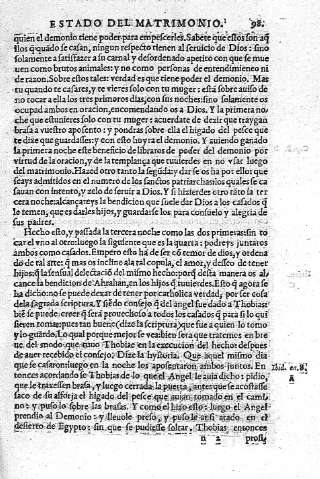 ESTADO DEL MATRIMONIO. 98.
quien el demonio tiene poder para empescerles. Sabete que estos son aq̃
llos q̃ quãdo se casan, ningun respecto tienen al seruicio de Dios: sino
solamente a satisfazer a su carnal y desordenado apetito con que se mue
uen como brutos animales: y no como personas de entendimieneto ni
de razon. Sobre estos tales: verdad es que tiene poder el demonio. Mas
tu quando te casares, y te vieres solo con tu muger: està sobre auiso de
no tocar a ella los tres primeros dias, con sus noches: sino solamente os
ocupad ambos en oracion, encomendando os a Dios. Y la primera no-
che que estuuieres solo con tu muger: acuerdate de dezir que traygan
brasa a vuestro aposento: y pondras sobre ella el higado del pesce que
te dixe que guardasses: y con esto huyra el demonio. Y auiendo ganado
la primera noche este beneficio de libraros de poder del demonio por
virtud de la oracion, y de la templança que tuuierdes en no vsar luego
del matrimonio. Hazed otro tanto la segũda: y dar se os ha por ello: que
seays admitidos en el numero de los sanctos patriarchas los quales se ca
sauan con intento, y zelo de seruir a Dios. Y si hizierdes otro tãto la ter
cera noche: alcançareys la bendicion que suele dar Dios a los casados q̃
le temen, que es darles hijos, y guardarselos para consuelo y alegria de
sus padres.
Hecho esto, y passada la tercera noche como las dos primeras: sin to
car el vno al otro: luego la siguiente que es la quarta: podreys juntaros
ambos como casados. Empero esto hã de ser cõ temor de dios, y ordena
do de tal arte: q̃ mas os incline a la tal copula, el amor, y desseo de tener
hijos: q̃ la sensual delectaciõ del mismo hecho: porq̃ desta manera os al
cance la bendicion de Abrahan, en los hijos q̃ tuuierdes. Esto q̃ agora se
ha dicho: no se puede dexar de tener por catholica verdad, por ser cosa
de la sagrada scriptura. Y siẽdo consejo q̃ del angel fue dado a Thobias
biẽ se puede creer q̃ serà prouechoso a todos los casados q̃ para si lo qui
sieren tomar: pues tan bueno (dize la scriptura) que fue a quien lo tomo
y lo guardò. Lo qual porque mejor se vea bien sera que tratemos en bre
ue del modo que tuuo Thobias en la execucion del hecho: despues
de auer recebido el consejo. Dize la hystoria. Que aquel mismo dia
que se casaron: luego en la noche los aposentaron ambos juntos. En
tonces acordando se Thobias de lo que el Angel le auia dicho: pidio,
que le traxessen brasa, y luego cerrada la puerta, antes que se acostasse
saco de su alforja el higado del pesce que auian tomado en el cami-
no: y puso lo sobre las brasas. Y como el hizo esto: luego el Angel
prendio al Demonio: y lleuole preso, y puso le assi atado en el
desierto de Egypto: sin que se pudiesse soltar. Thobias entonces
n 2 prosi-
A